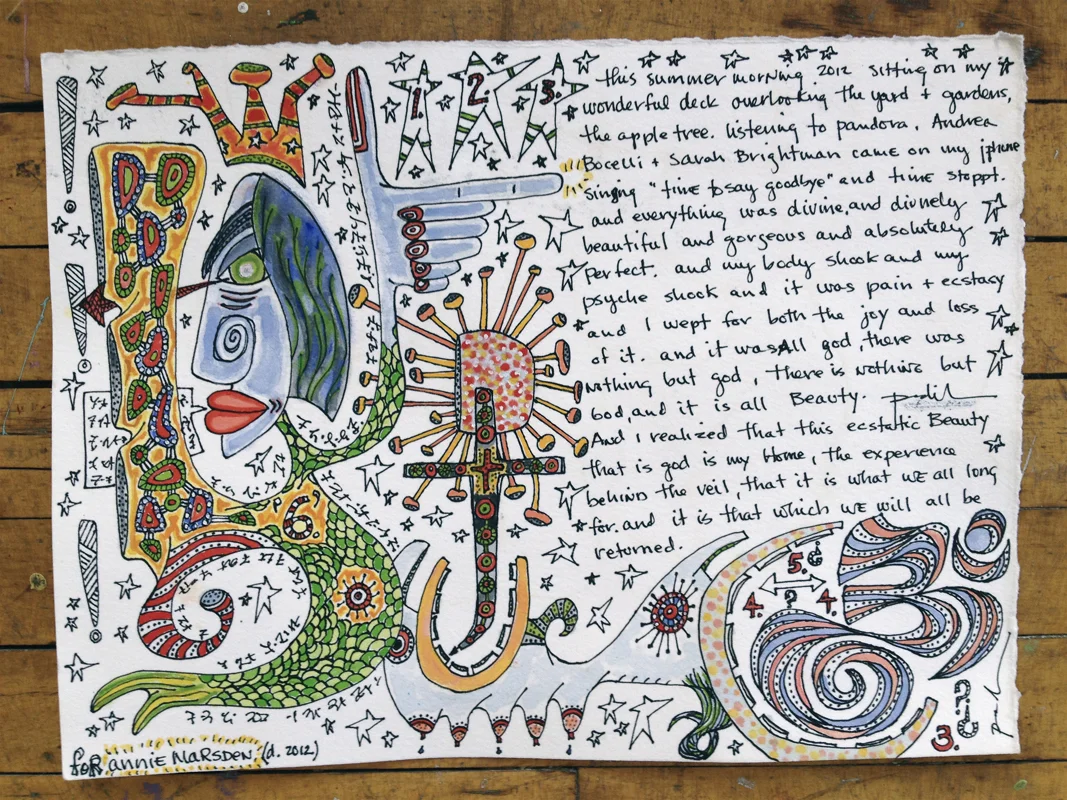 1. 2. 3.
this summer morning, 2012 sitting on my
wonderful deck overlooking the yard + gardens,
the apple tree. listening to pandora, Andrea
Bocelli + Sarah Brightman came on my iphone
singing "time to say goodbye" and time stoppt.
and everything was divine, and divinely
beautiful and gorgeous and absolutely
perfect. and my body shook and my
psyche shook and it was pain + ecstasy
and I wept for both the joy and loss
of it. and it was All god, there was
nothing but god, there is nothing but
God, and it is all Beauty.
And I realized that this ecstatic Beauty
that is god is my Home, the experience
behind the veil, that it is what we all long
for. and it is that which we will all be
returned.
6.
5.
4. ? 4.
3.
for annie Marsden. (d. 2012)